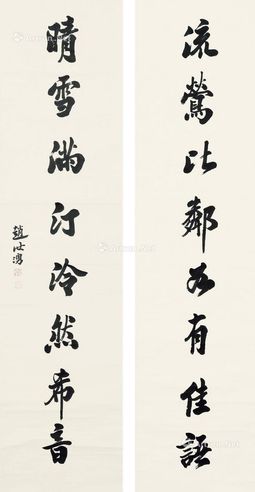 流鶯比鄰如有佳語
晴雪滿汀泠然希音
趙世駿